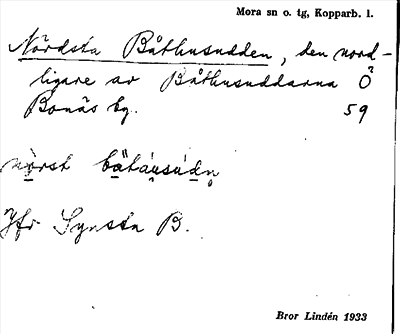 Mora sn o. tg, Kopparb. l.
Nordsta Båthusudden, den nord-
ligare av Båthusuddarna Ö
Bonäs by. 59
nọrst bätáusúdn
Jfr Synsta B.
Bror Lindén 1933